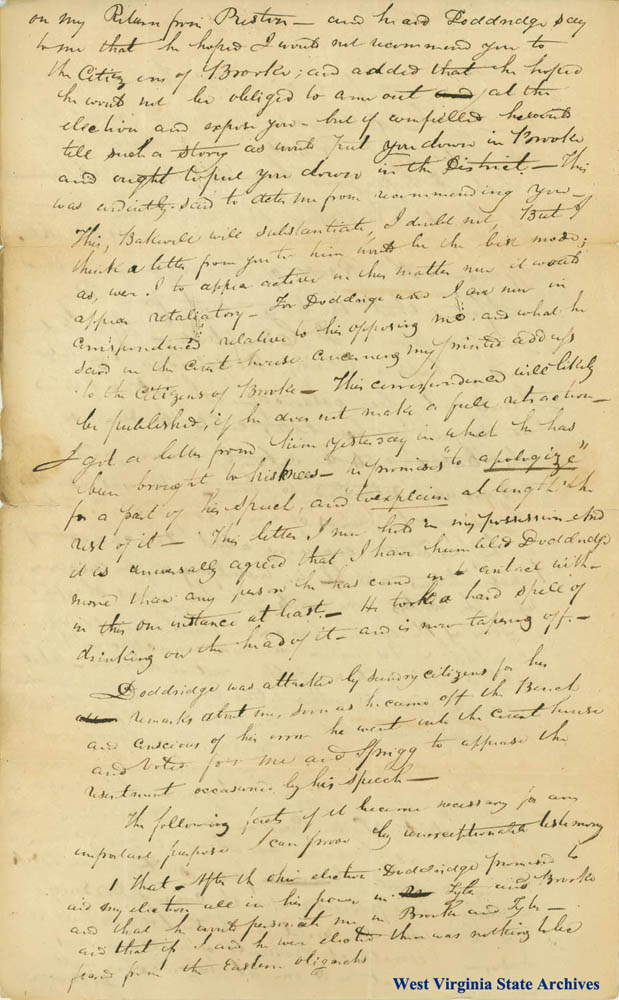 on my Return from Preston – and heard Doddridge say
to me that he hoped I would not recommend you to
the Citizens of Brooke; and added that he hoped
he would not be obliged to come out at the
election and expose you – but if compelled he would
tell such a story as would put you down in Brooke
and ought to put you down in the District. – This
was evidently said to deter me from recommending you –
This, Bakewell will substantiate, I doubt not, But I
think a letter from you to him would be the best mode;
as, were I to appear active in this matter now it would
appear retaliatory – For Doddridge and I are now in
correspondence relative to his opposing me and what he
said in the Court house concerning my printed address
to the Citizens of Brooke – This correspondence will likely
be published, if he does not make a full retraction –
I got a letter from him yesterday in which he has
been brought to his knees – he promises "to apologize"
for a part of his speech, and to explain at length the
rest of it – This letter I now hold in my possession and
it is universally agreed that I have humbled Doddridge
more than any person he has come in contact with –
in this one instance at least. – He took a hard spell of
drinking on the head of it – and is now tapering off. –
Doddridge was attacked by sundry citizens for his
remarks about me, soon as he came off the Bench
and conscious of his error he went into the Court house
and voted for me and Sprigg to appease the
resentment occasioned by his speech –
The following facts if it become necessary for any
important purpose I can prove by unexceptionable testimony
1 That – After the ohio election Doddridge promised to
aid my election all in his power in Tyler and Brooke
and that he would personate me in Brooke and Tyler –
and that if I and he were elected there was nothing to be
feared from the Eastern oligarchs
West Virginia State Archives